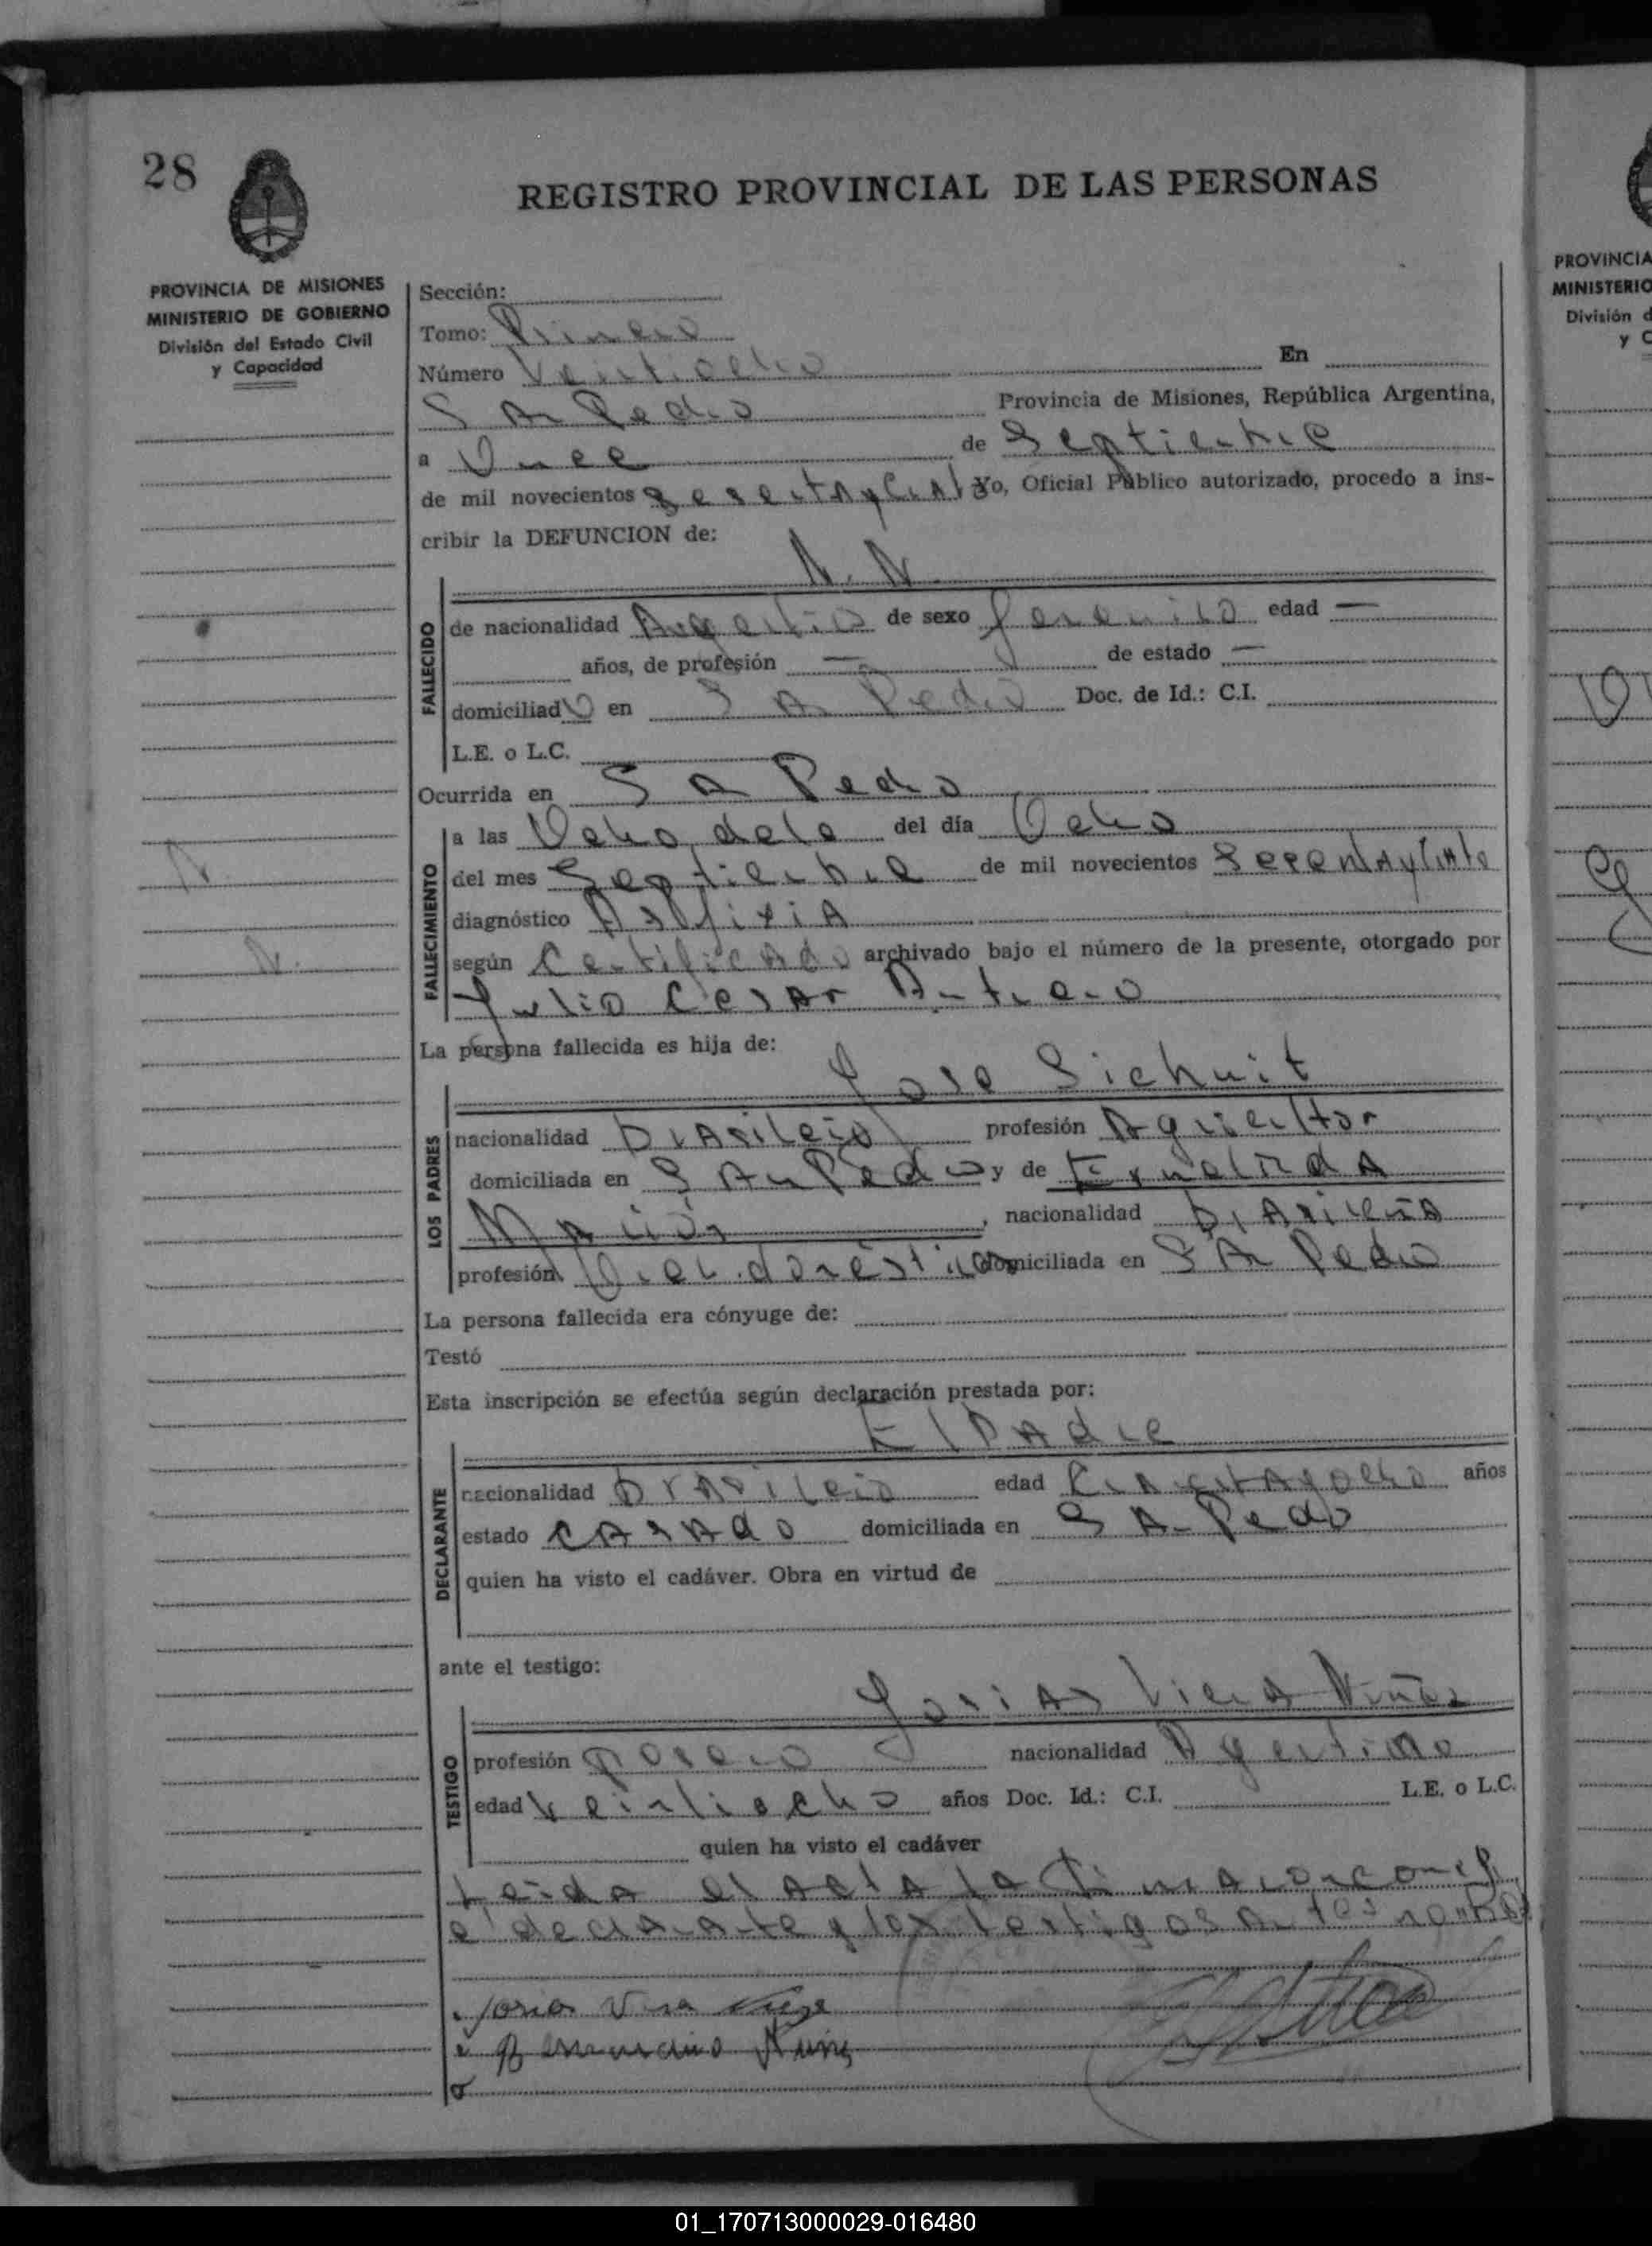 28
REGISTRO PROVINCIAL DE LAS PERSONAS
PROVINCIA DE MISIONES
MINISTERIO DE GOBIERNO
División del Estado Civil
y Capacidad
Sección:
Tomo: Primero
Número Ventiocho En
San Pedro Provincia de Misiones, República Argentina,
a Once de Septiembre
de mil novecientos Yo, Oficial Público autorizado, procedo a ins-
cribir la DEFUNCION de:
N. N.
FALLECIDO
de nacionalidad Argentino de sexo femenino edad —
años, de profesión — de estado —
domiciliado en San Pedro Doc. de Id.: C.I.
L.E. o L.C.
Ocurrida en San Pedro
FALLECIMIENTO
a las Ocho de la del día Ocho
del mes Septiembre de mil novecientos
diagnóstico Asfixia
según Certificado archivado bajo el número de la presente, otorgado por
Julio Cesar
La persona fallecida es hija de:
Jose Sichuit
LOS PADRES
nacionalidad brasilero profesión Agricultor
domiciliada en San Pedro y de
, nacionalidad brasileña
profesión domiciliada en San Pedro
La persona fallecida era cónyuge de:
Testó
Esta inscripción se efectúa según declaración prestada por:
El Padre
DECLARANTE
nacionalidad brasilero edad años
estado casado domiciliada en San Pedro
quien ha visto el cadáver. Obra en virtud de
ante el testigo:
Josias Viera
TESTIGO
profesión nacionalidad Argentino
edad Veintiocho años Doc. Id.: C.I. L.E. o L.C.
quien ha visto el cadáver
Leida el acta la
declarante y los testigos
N.
N.
PROVINCIA
MINISTERIO
División d
y C
01_170713000029-016480